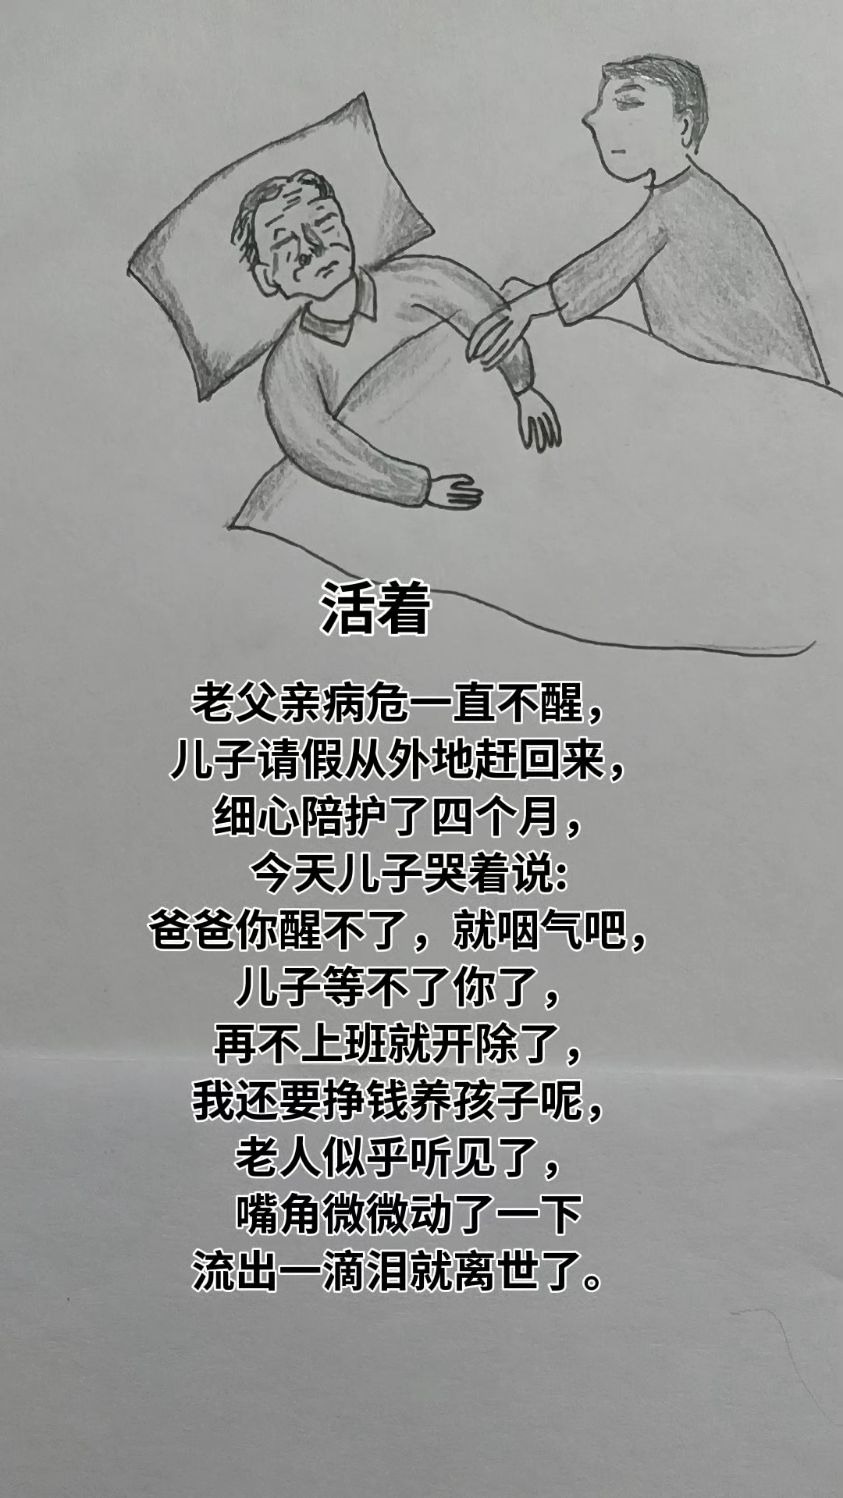 活着
老父亲病危一直不醒，
儿子请假从外地赶回来，
细心陪护了四个月，
今天儿子哭着说:
爸爸你醒不了，就咽气吧，
儿子等不了你了，
再不上班就开除了，
我还要挣钱养孩子呢，
老人似乎听见了，
嘴角微微动了一下
流出一滴泪就离世了。